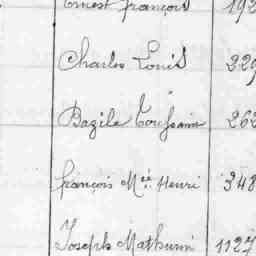 Ernest françois 192
Charles Louis 229
Bazile Toussain 262
françois Mce Henri 348
Joseph Mathurin 1127